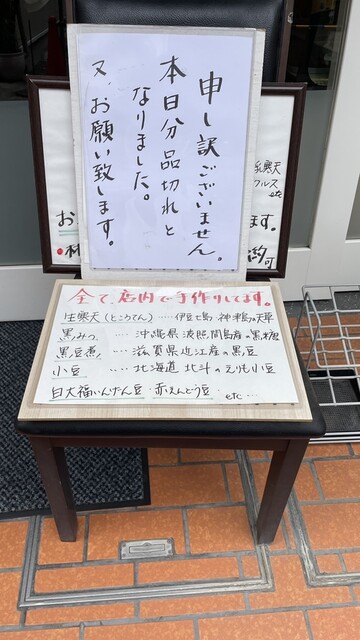 申し訳ございません。
本日分品切れと
なりました。
又、お願い致します。
乳寒天
フルス
etc
お
ます。
全て、店内で手作りしてます。
生寒天(ところてん)‥‥伊豆七島 神津島の天草
黒みつ ‥‥ 沖縄県 波照間島産の黒糖
黒豆煮 ‥‥ 滋賀県近江産の黒豆
小豆 ‥‥ 北海道 北斗のえりも小豆
白大福いんげん豆・赤えんどう豆・etc…